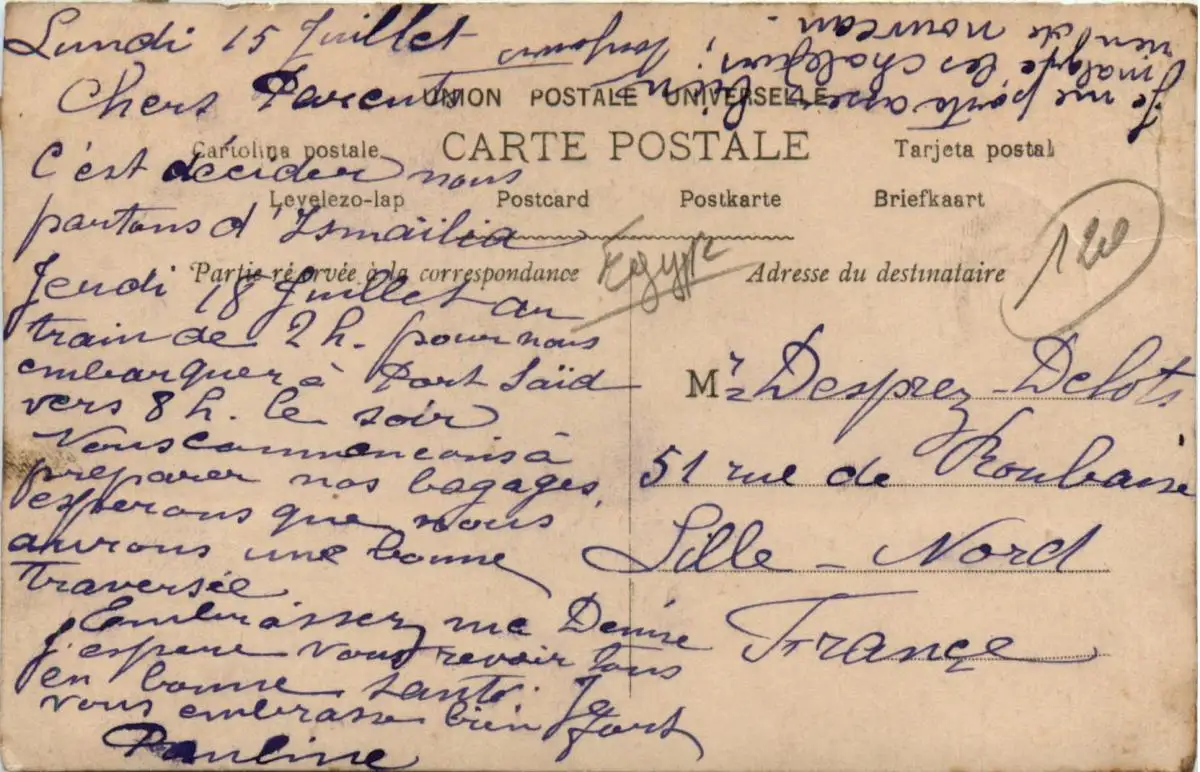 Lundi 15 Juillet
Chers Parents
C'est décider nous
partons d'Ismaïlia
Jeudi 18 Juillet au
train de 2 h. pour nous
embarquer à Port Saïd
vers 8 h. le soir
Nous commencons à
préparer nos bagages,
esperons que nous
aurons une bonne
traversée
Embrasser me Denise
j'espere vous revoir tous
en bonne santé. Je
vous embrasse bien fort
Pauline
Je me porte assez bien
malgré les chaleurs;
rien de nouveau.
UNION POSTALE UNIVERSELLE
CARTE POSTALE
Cartolina postale
Tarjeta postal
Levelezo-lap
Postcard
Postkarte
Briefkaart
Partie réservée à la correspondance
Egypt
Adresse du destinataire
120
Mr Desprez-Delots
51 rue de Roubaix
Lille - Nord
France